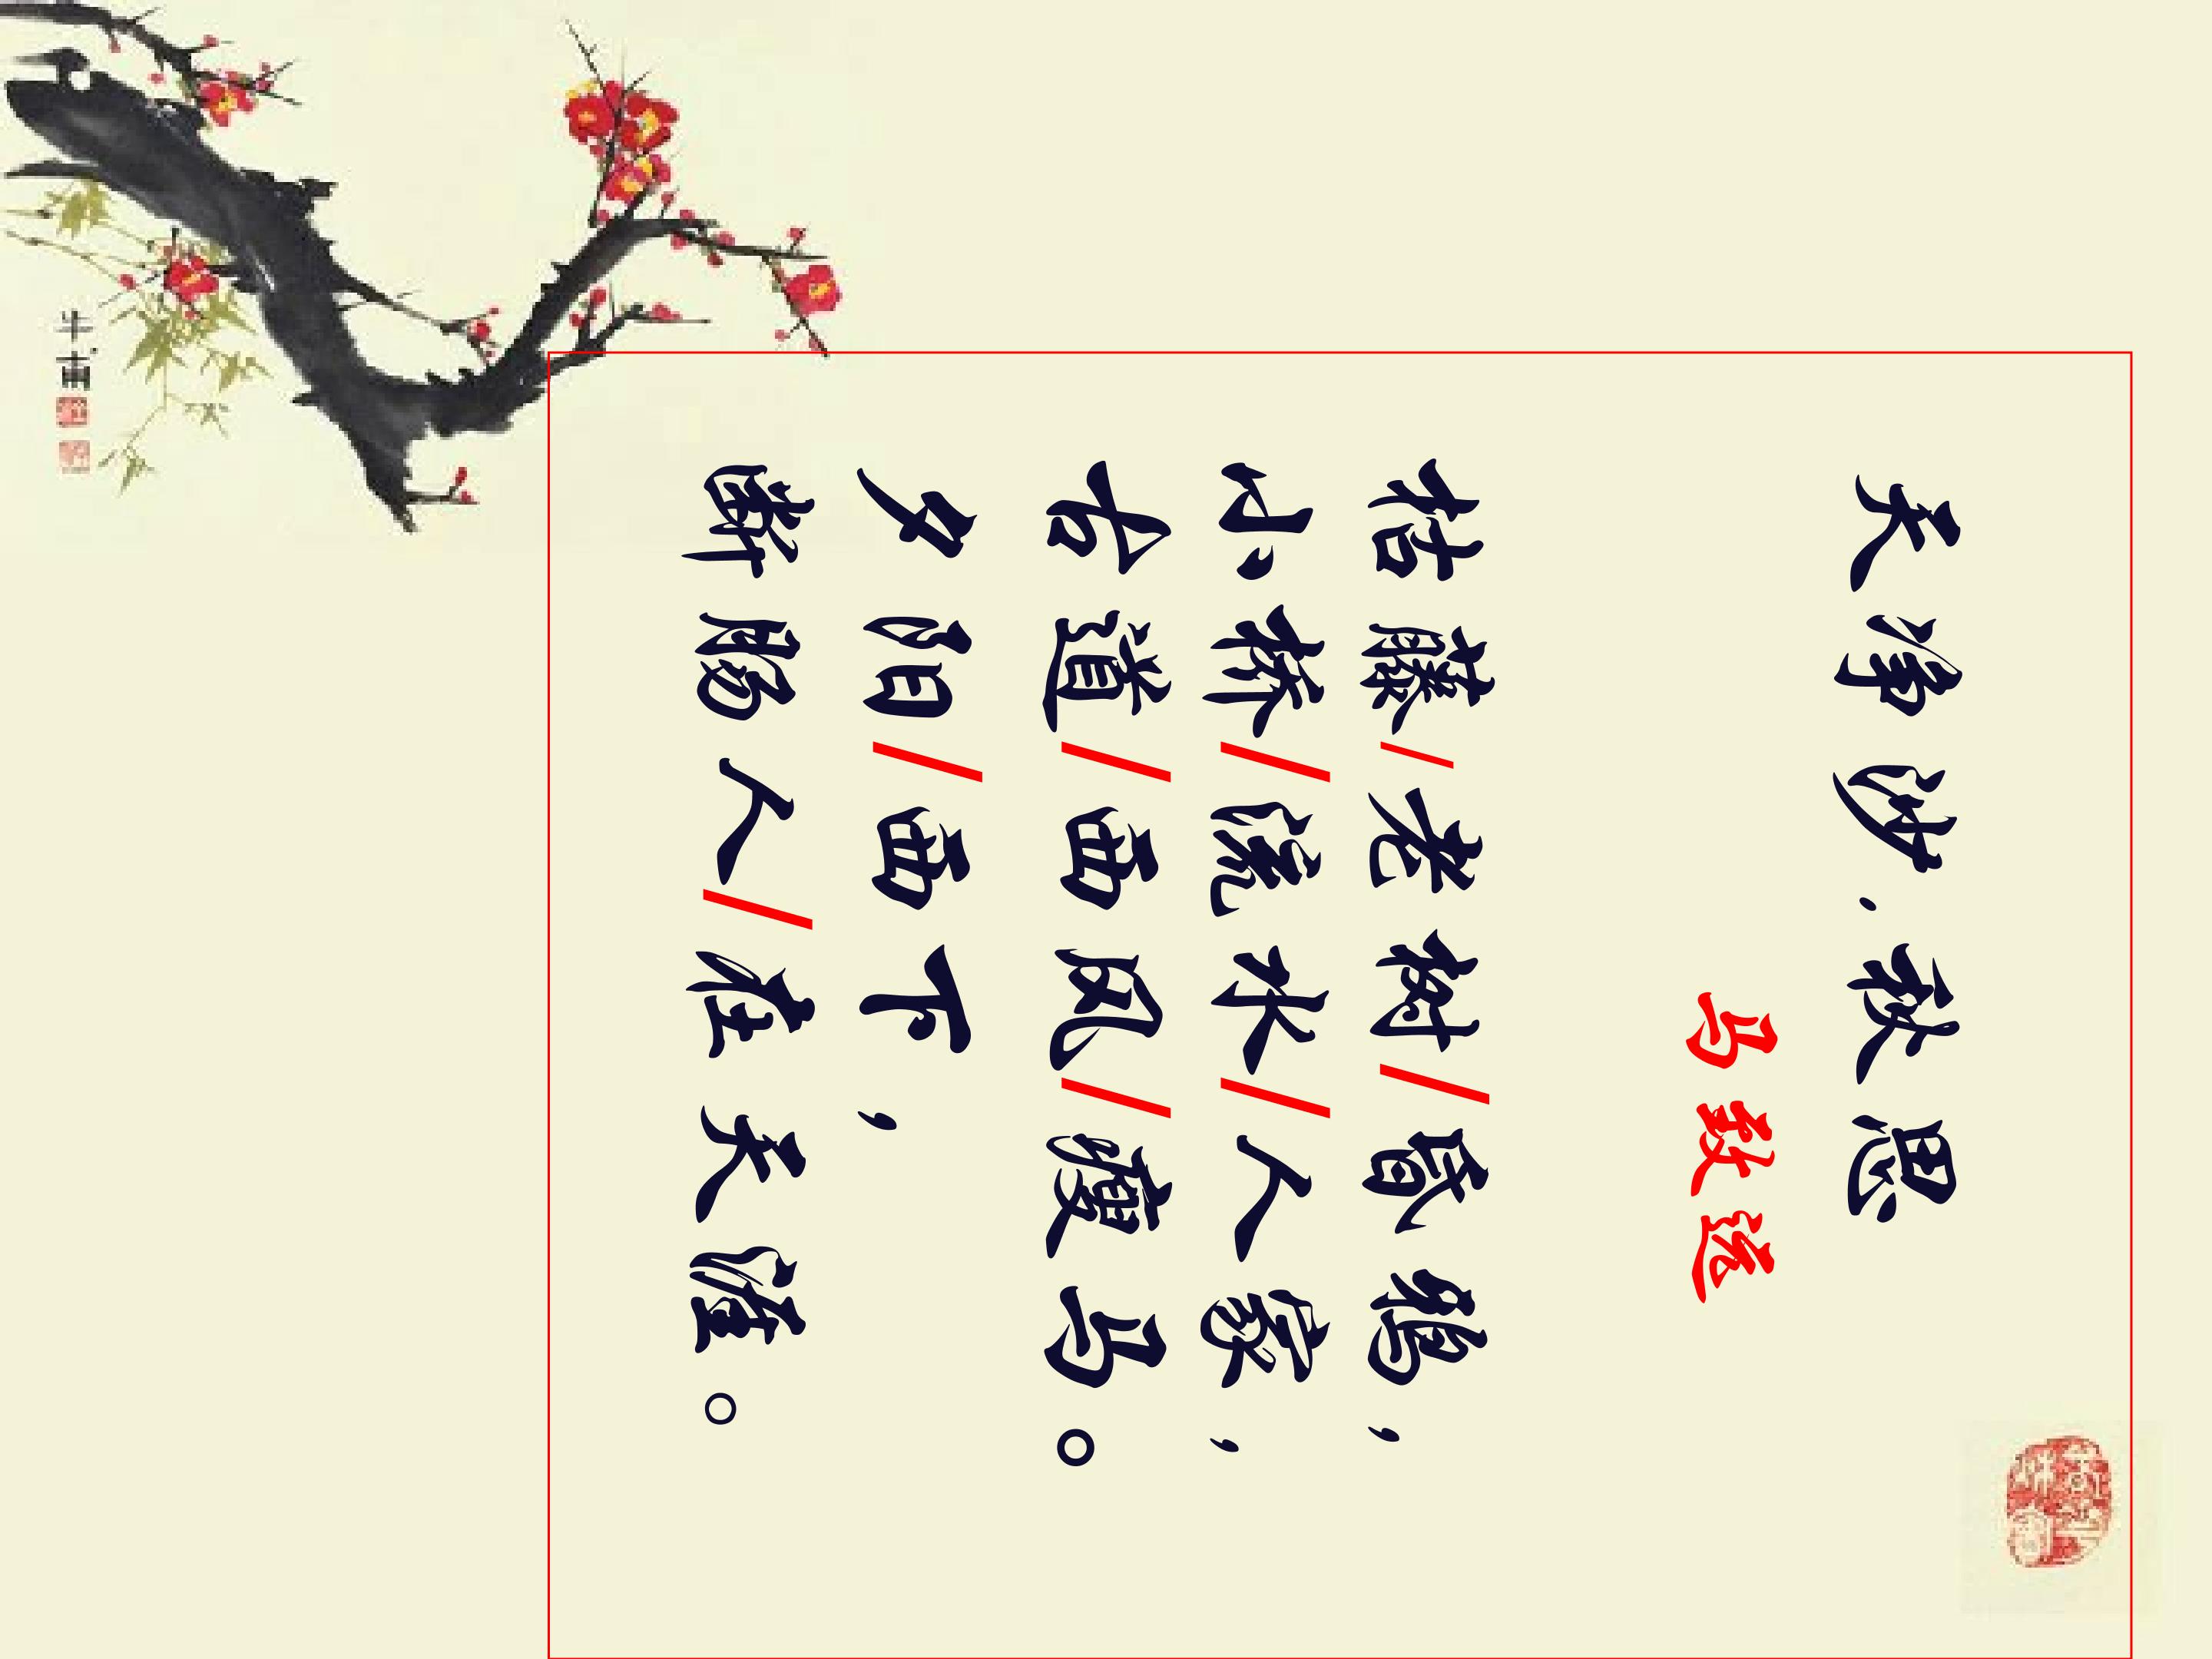 天净沙.秋思
马致远
枯藤/老树/昏鸦，
小桥/流水/人家，
古道/西风/瘦马。
夕阳/西下，
断肠人/在天涯。